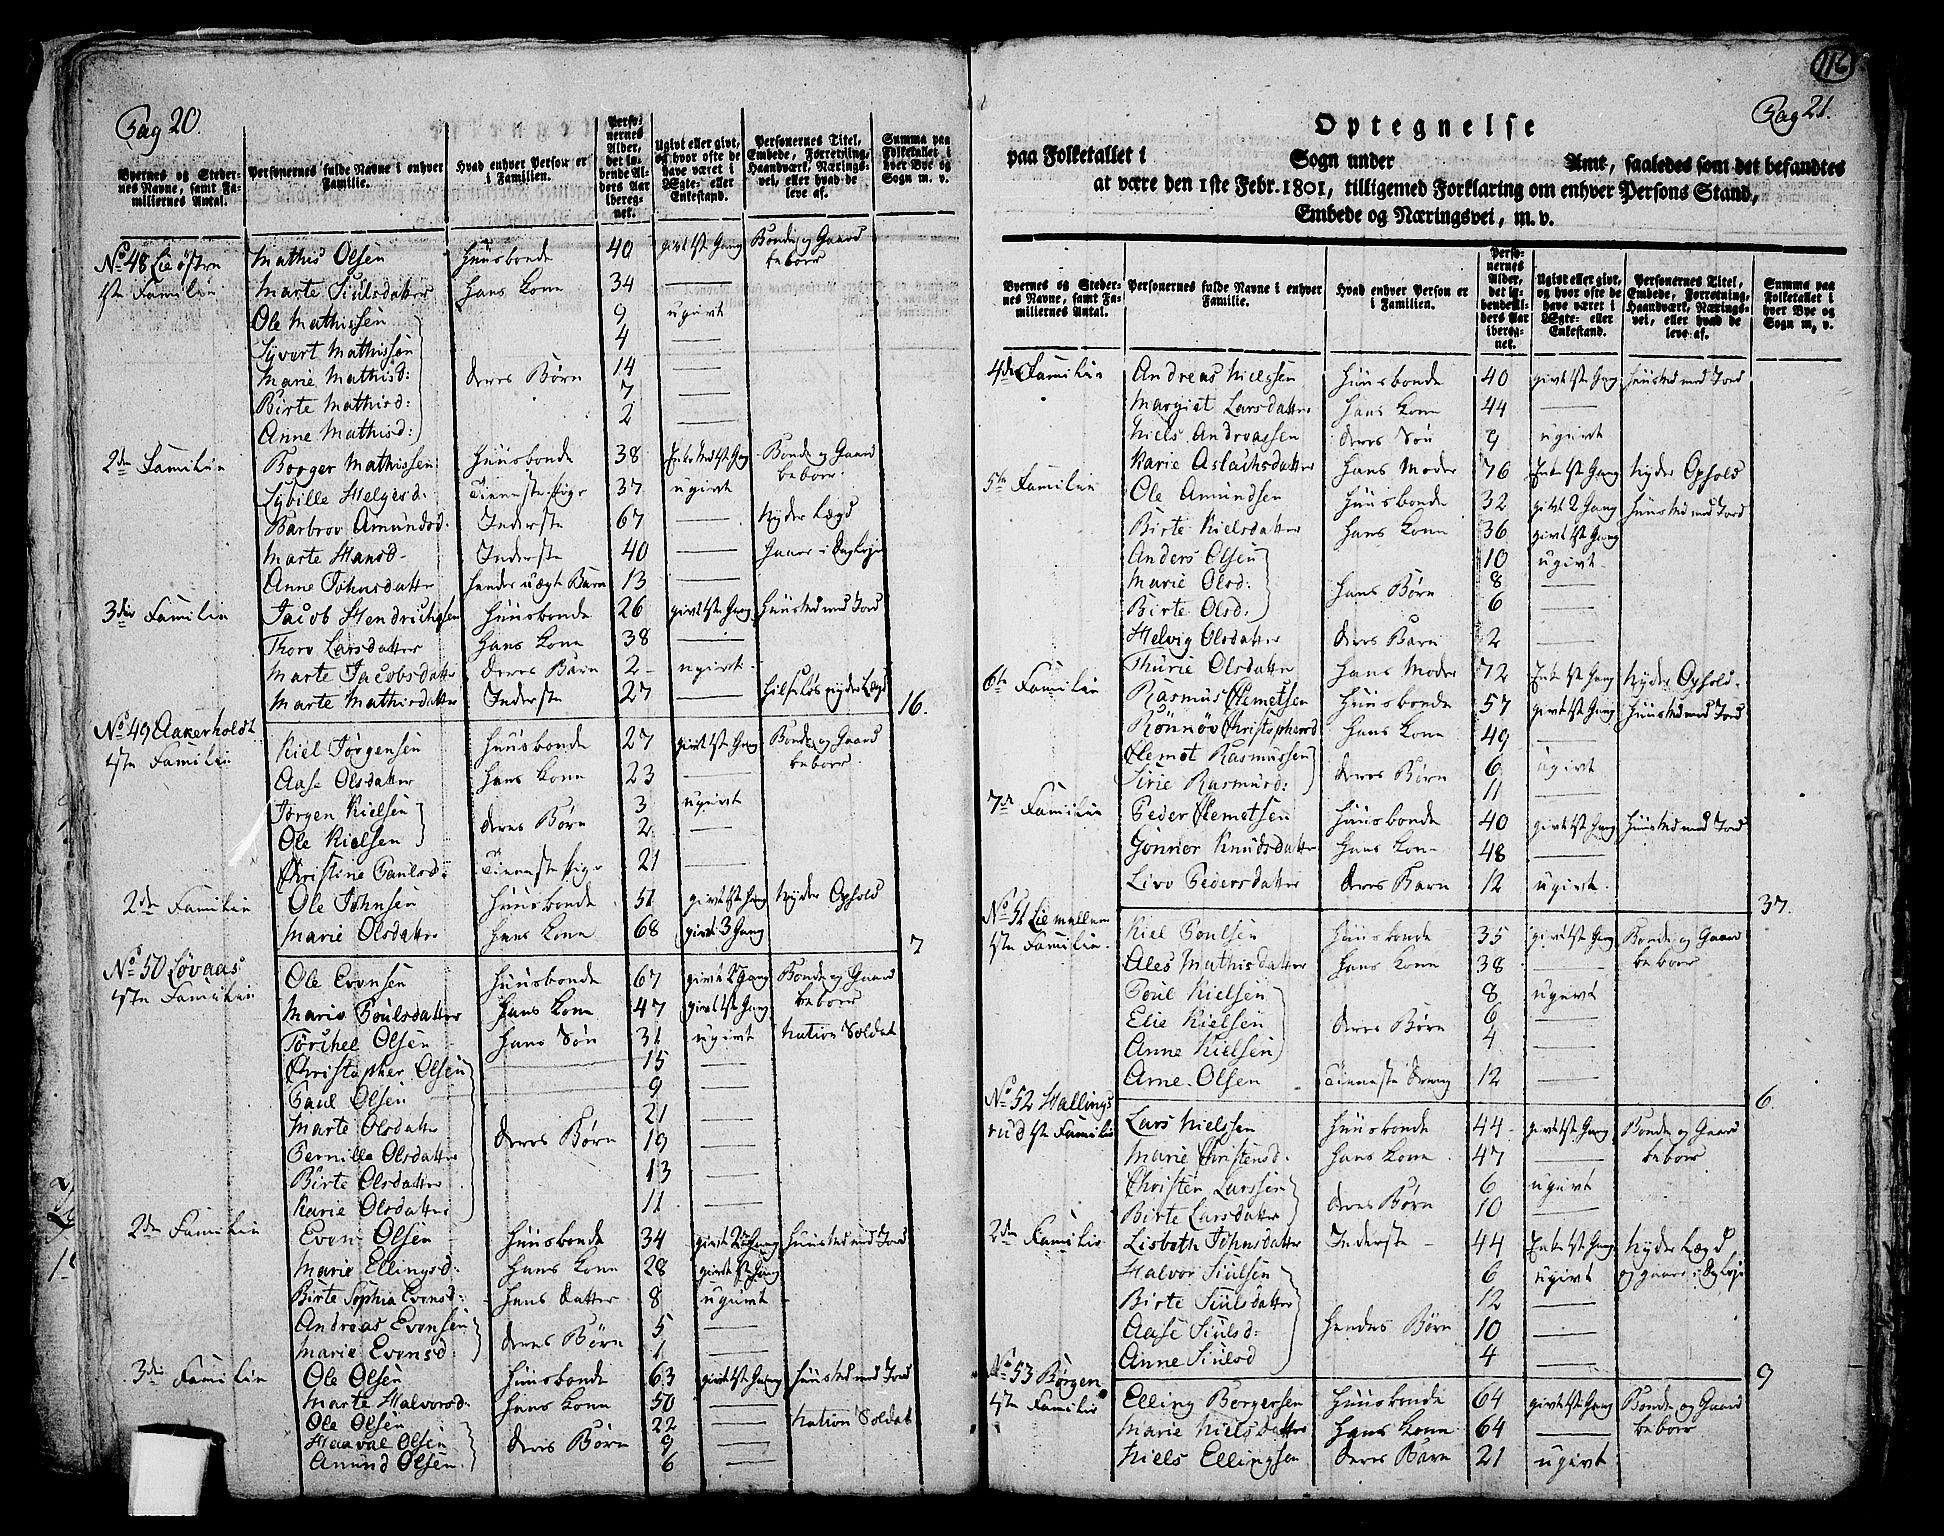 Pag 20.
Byernes og Stedernes Navne, samt Familiernes Antal. | Personernes fulde Navne i enhver Familie. | Hvad enhver Person er i Familien. | Personernes Alder, det løbende Alders Aar iberegnet. | Ugivt eller givt, og hvor ofte de have været i Ægte- eller Enkestand. | Personernes Titel, Embede, Forretning, Haandværk, Næringsvei, eller hvad de leve af. | Summa paa Folketallet i hver Bye og Sogn m. v.
No 48 Lie østre | Mathis Olsen | Huusbonde | 40 | givt 1ste Gang | Bonde og Gaardbeboer
1ste Familie | Marte Siulsdatter | hans Kone | 34 | —
Ole Mathissen | 9 | ugivt
Syvert Mathissen | 4 | —
Marie Mathisd: | deres Børn | 14 | —
Birte Mathisd: | 7 | —
Anne Mathisd: | 2 | —
2den Familie | Borger Mathissen | Huusbonde | 38 | Enkemand 1ste Gang | Bonde og Gaardbeboer
Sybille Helgesd. | Tienneste Pige | 37 | ugivt
Barbrov Amundsd. | Inderste | 67 | — | Nyder Lægd
Marte Hansd. | Inderste | 40 | — | Gaaer i Dagleje
Anne Johnsdatter | hendes uægte Barn | 13 | —
3die Familie | Jacob Hendrichsen | Huusbonde | 26 | givt 1ste Gang | Huusmed med Jord
Thore Larsdatter | hans Kone | 38 | —
Marte Jacobsdatter | deres Barn | 2 | ugivt
Marte Mathisdatter | Inderste | 27 | — | hielpeløs nyder Lægd | 16.
No 49 Aakerholdt
1ste Familie | Niel Jørgensen | Huusbonde | 27 | givt 1ste Gang | Bonde og Gaardbeboer
Aase Olsdatter | hans Kone | 23 | —
Jørgen Nielsen | 3 | ugivt
Ole Nielsen | deres Børn | 2 | —
Christine Paulsd: | Tienneste Pige | 21 | —
2den Familie | Ole Johnsen | Huusbonde | 51 | givt 1ste Gang | Nyder Ophold
Marie Olsdatter | hans Kone | 68 | givt 3 Gang | 7
No 50 Løvaas | Ole Evensen | Huusbonde | 67 | givt 2 Gang | Bonde og Gaardbeboer
1ste Familie | Marie Poulsdatter | hans Kone | 47 | givt 1ste Gang
Torchel Olsen | hans Søn | 31 | ugivt | Nation Soldat
Christopher Olsen | 15 | —
Paul Olsen | 9 | —
Marte Olsdatter | 21 | —
Pernille Olsdatter | deres Børn | 19 | —
Birte Olsdatter | 13 | —
Karie Olsdatter | 11 | —
2den Familie | Even Olsen | Huusbonde | 34 | givt 2 Gang | Huusmed med Jord
Marie Ellingsd: | hans Kone | 28 | givt 1ste Gang
Birte Sophia Evensd: | hans Datter | 8 | ugivt
Andreas Evensen | 5 | —
Marie Evensd: | deres Børn | 1 | —
3die Familie | Ole Olsen | Huusbonde | 63 | givt 1ste Gang | Huusmed med Jord
Marte Halvorsd. | hans Kone | 50 | —
Ole Olsen | 22 | — | Nation Soldat
Haaval Olsen | deres Børn | 9 | —
Amund Olsen | 6 | —
116
Pag 21.
Optegnelse
paa Folketallet i Sogn under Amt, saaledes som det befandtes
at være den 1ste Febr. 1801, tilligemed Forklaring om enhver Persons Stand,
Embede og Næringsvei, m. v.
Byernes og Stedernes Navne, samt Familiernes Antal. | Personernes fulde Navne i enhver Familie. | Hvad enhver Person er i Familien. | Personernes Alder, det løbende Alders Aar iberegnet. | Ugivt eller givt, og hvor ofte de have været i Ægte- eller Enkestand. | Personernes Titel, Embede, Forretning, Haandværk, Næringsvei, eller hvad de leve af. | Summa paa Folketallet i hver Bye og Sogn m. v.
4de Familie | Andreas Nielssen | Huusbonde | 40 | givt 1ste Gang | Huusmed med Jord
Margiet Larsdatter | hans Kone | 44 | —
Niels Andreassen | deres Søn | 9 | ugivt
Karie Aslachsdatter | hans Moder | 76 | Enke 1ste Gang | Nyder Ophold
5te Familie | Ole Amundsen | Huusbonde | 32 | givt 2 Gang | Huusmed med Jord
Birte Nielsdatter | hans Kone | 36 | givt 1ste Gang
Anders Olsen | 10 | ugivt
Marie Olsd: | hans Børn | 8 | —
Birte Olsd. | 6 | —
Helvig Olsdatter | deres Barn | 2 | —
Thurie Olsdatter | hans Moder | 72 | Enke 1ste Gang | Nyder Ophold
6te Familie | Rasmus Clemetsen | Huusbonde | 57 | givt 1ste Gang | Huusmed med Jord
Rønnøv Christophersd | hans Kone | 49 | —
Clemet Rasmussen | 6 | ugivt
Sirie Rasmusd: | deres Børn | 11 | —
7de Familie | Peder Clemetsen | Huusbonde | 40 | givt 1ste Gang | Huusmed med Jord
Gønnor Knudsdatter | hans Kone | 48 | —
Live Pedersdatter | deres Barn | 12 | ugivt | 37.
No 51 Lie mellem | Niel Poulsen | Huusbonde | 35 | givt 1ste Gang | Bonde og Gaardbeboer
1ste Familie | Ales Mathisdatter | hans Kone | 38 | —
Poul Nielsen | 8 | ugivt
Elie Nielsen | deres Børn | 6 | —
Anne Nielsen | 4 | —
Arne Olsen | Tienneste Dreng | 12 | — | 6.
No 52 Hallings
rud 1ste Familie | Lars Nielssen | Huusbonde | 44 | givt 1ste Gang | Bonde og Gaardbeboer
Marie Christensd. | hans Kone | 47 | —
Christen Larssen | 6 | ugivt
Birte Larsdatter | deres Børn | 10 | —
2den Familie | Lisbeth Johnsdatter | Inderste | 44 | Enke 1ste Gang | Nyder Lægd og gaaer i Dagleje
Halvor Siulsen | 6 | ugivt
Birte Siulsdatter | 12 | —
Aase Siulsd: | hendes Børn | 10 | —
Anne Siulsd | 4 | — | 9
No 53 Børgen
1ste Familie | Elling Borgersen | Huusbonde | 64 | givt 1ste Gang | Bonde og Gaardbeboer
Marie Nielsdatter | hans Kone | 64 | —
Niels Ellingsen | deres Barn | 21 | ugivt